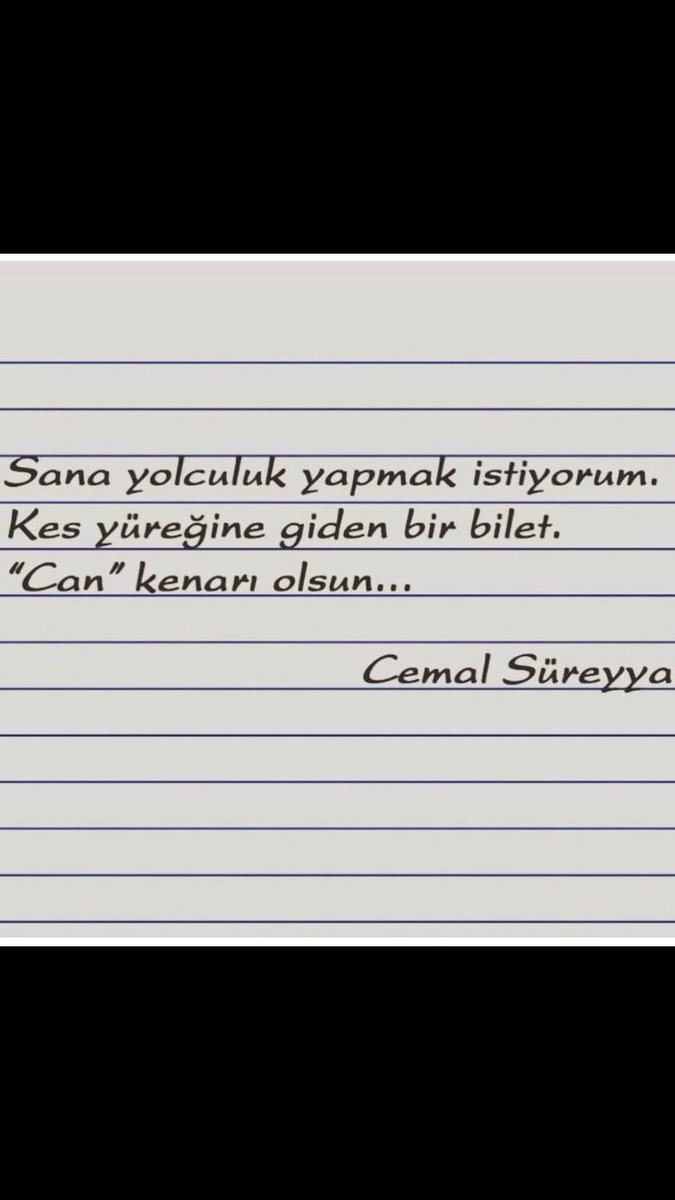 Sana yolculuk yapmak istiyorum.
Kes yüreğine giden bir bilet.
"Can" kenarı olsun...
Cemal Süreyya